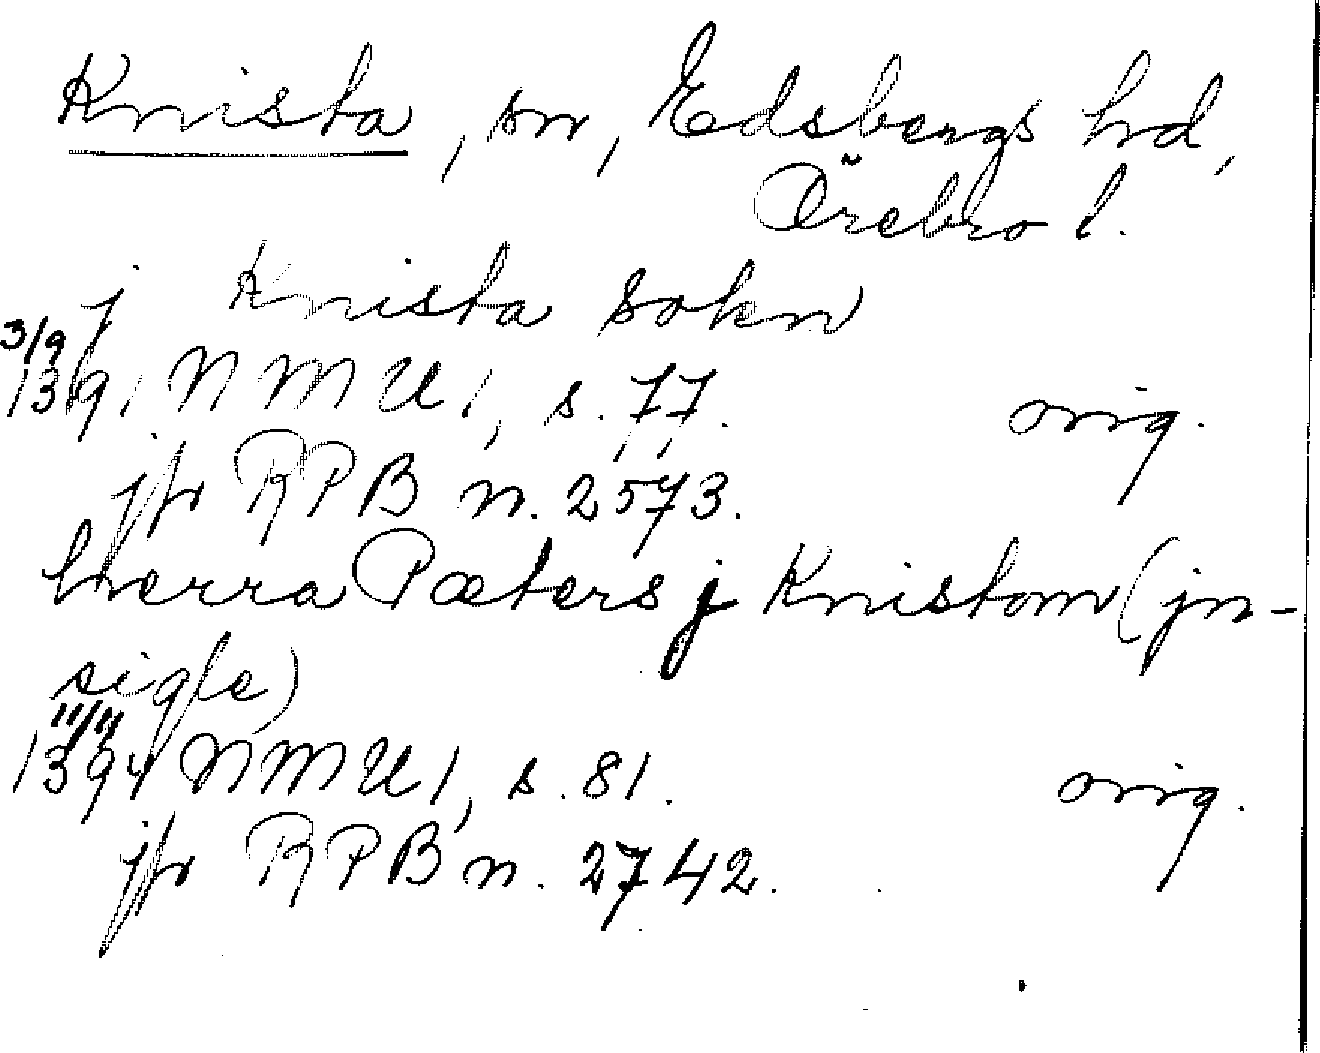 Knista, sn, Edsbergs hd,
Örebro l.
j Knista sokn
3/9
1391 NMU 1, s. 77. orig.
jfr RPB n. 2573.
hærra Pæters j Knistom (jn-
sigle)
11/11
1394 NMU 1, s. 81. orig.
jfr RPB n. 2742.